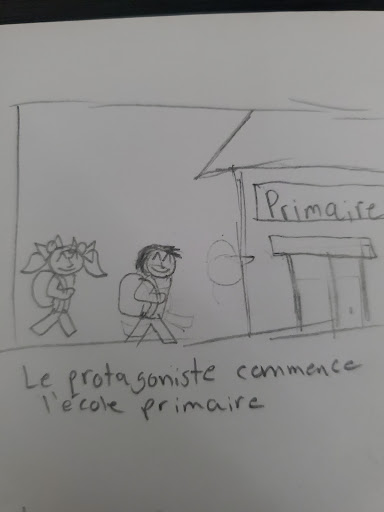 Primaire
Le protagoniste commence
l'école primaire